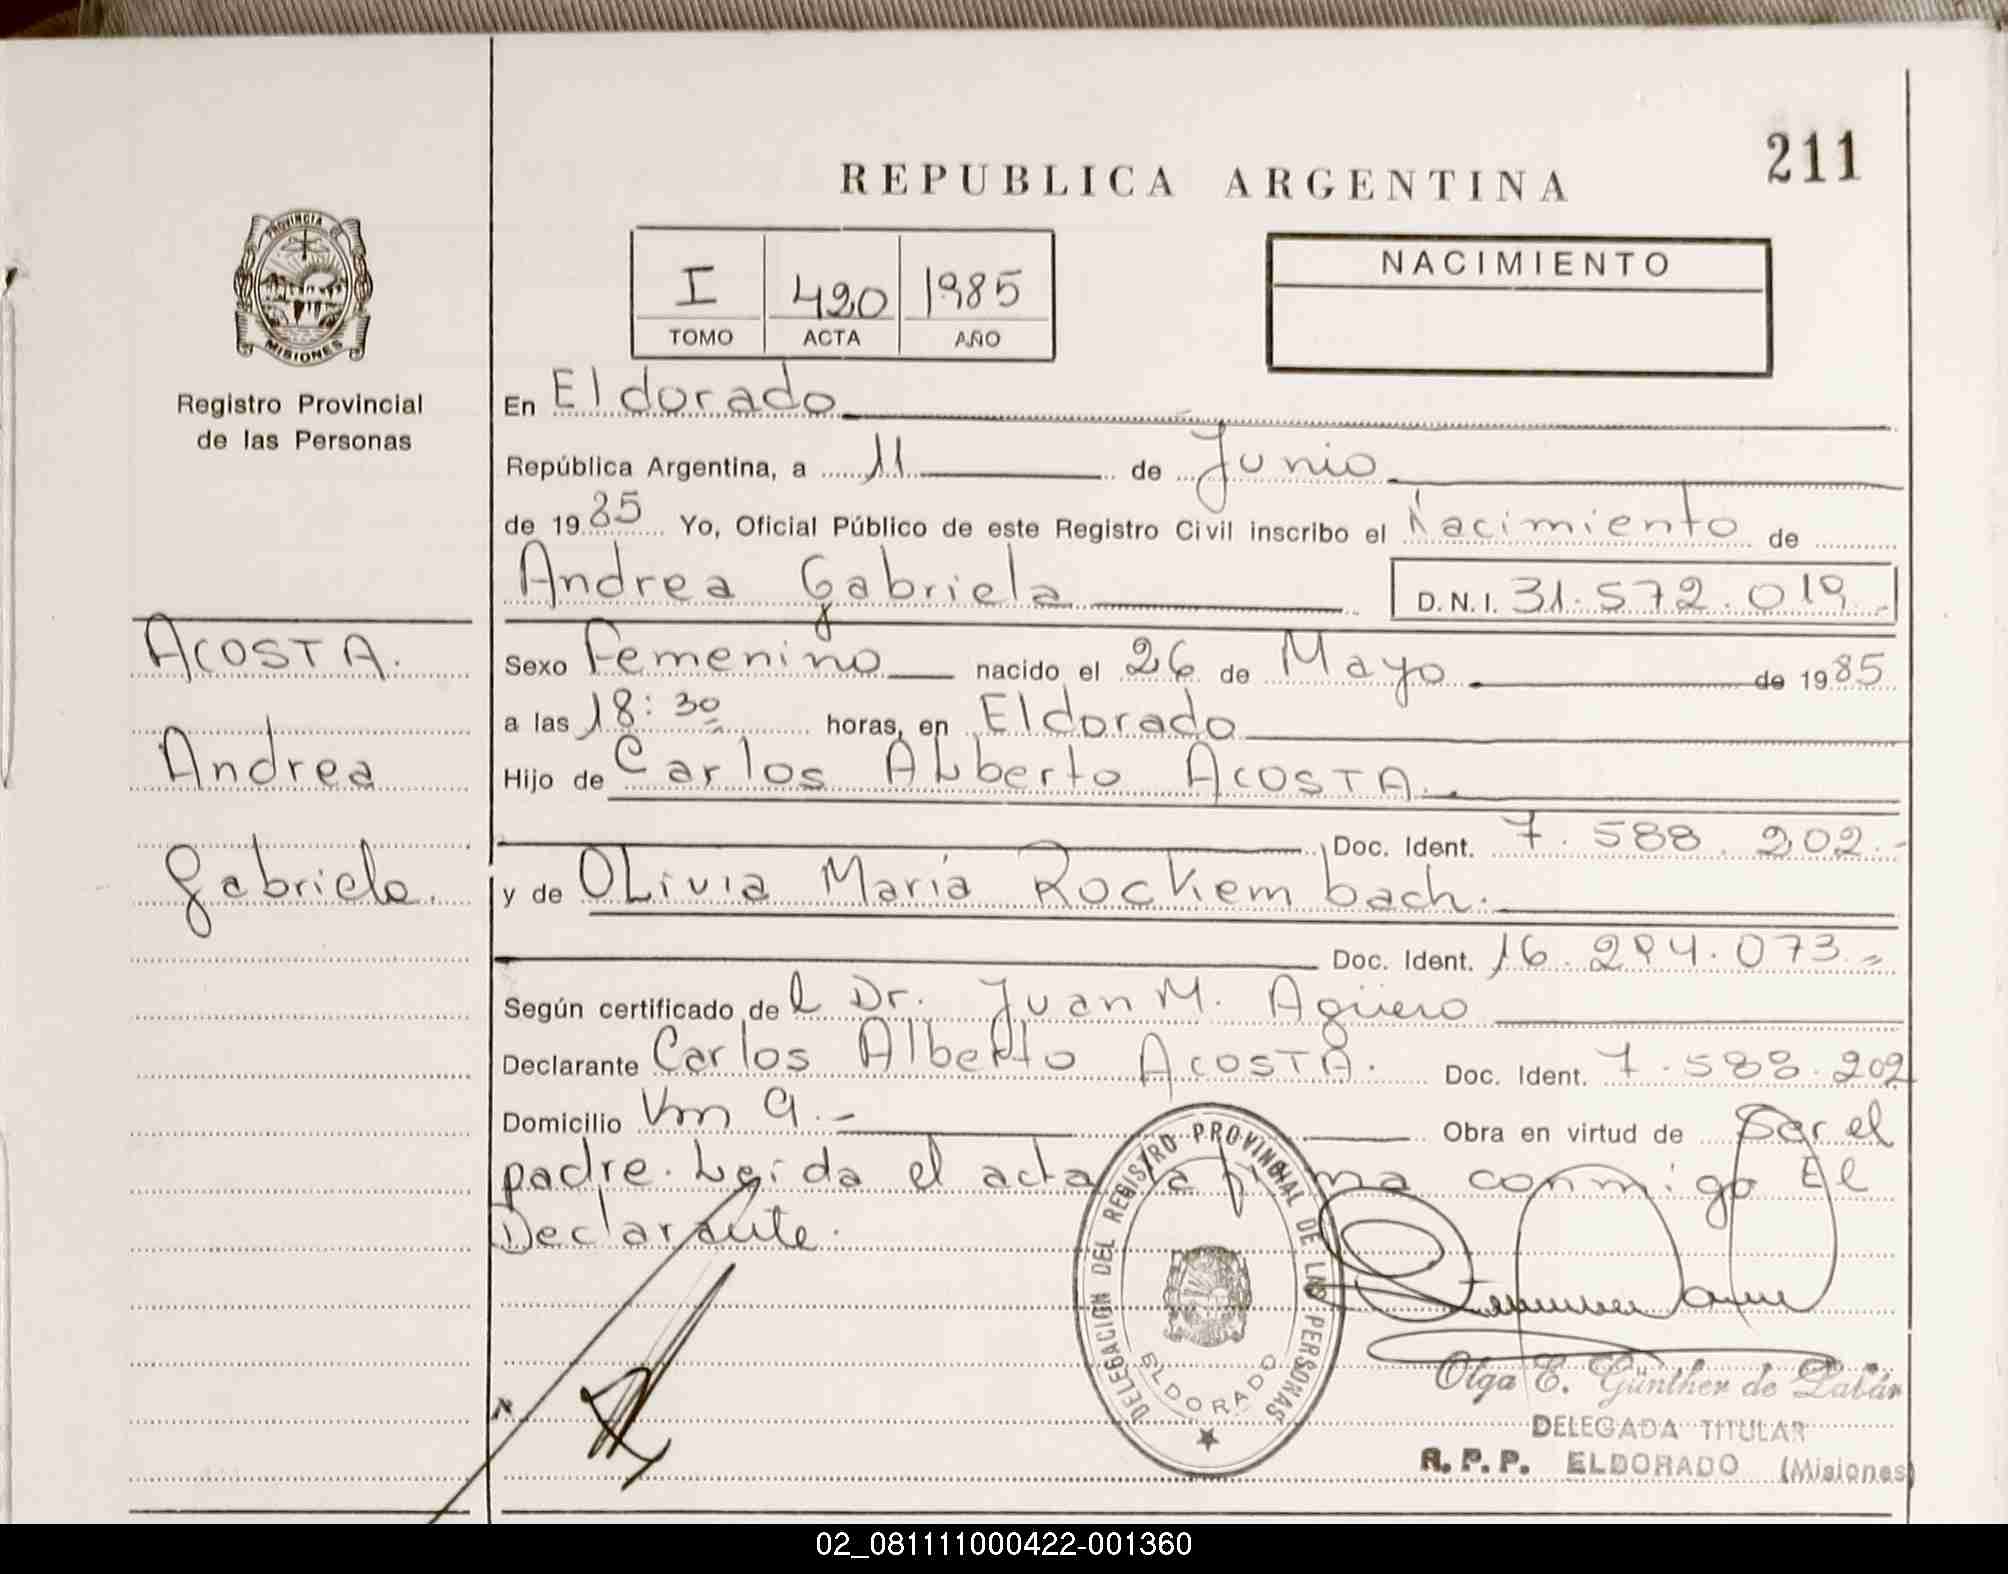 211
REPUBLICA ARGENTINA
PROVINCIA DE
MISIONES
Registro Provincial
de las Personas
I 420 1985
TOMO ACTA AÑO
NACIMIENTO
En Eldorado
República Argentina, a 11 de Junio
de 1985 Yo, Oficial Público de este Registro Civil inscribo el Nacimiento de
Andrea Gabriela D.N.I. 31.572.019.-
ACOSTA.
Andrea
Gabriela.
Sexo Femenino nacido el 26 de Mayo de 1985
a las 18:30 horas, en Eldorado
Hijo de Carlos ALberto ACOSTA.
Doc. Ident. 7.588.202.-
y de OLivia María Rockembach.
Doc. Ident. 16.294.073.-
Según certificado de l Dr. Juan M. Agüero
Declarante Carlos Alberto ACOSTA. Doc. Ident. 7.588.202
Domicilio Km 9.- Obra en virtud de Ser el
padre. Leida el acta la firma conmigo El
Declarante.
DELEGACION DEL REGISTRO PROVINCIAL DE LAS PERSONAS
ELDORADO
Olga E. Günther de
DELEGADA TITULAR
R.P.P. ELDORADO (Misiones)
02_081111000422-001360